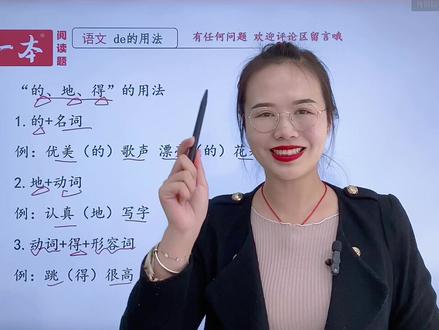 一本
阅读题
语文 de的用法
有任何问题 欢迎评论区留言哦
“的、地、得”的用法
1.的+名词
例：优美（的）歌声 漂亮（的）花
2.地+动词
例：认真（地）写字
3.动词+得+形容词
例：跳（得）很高